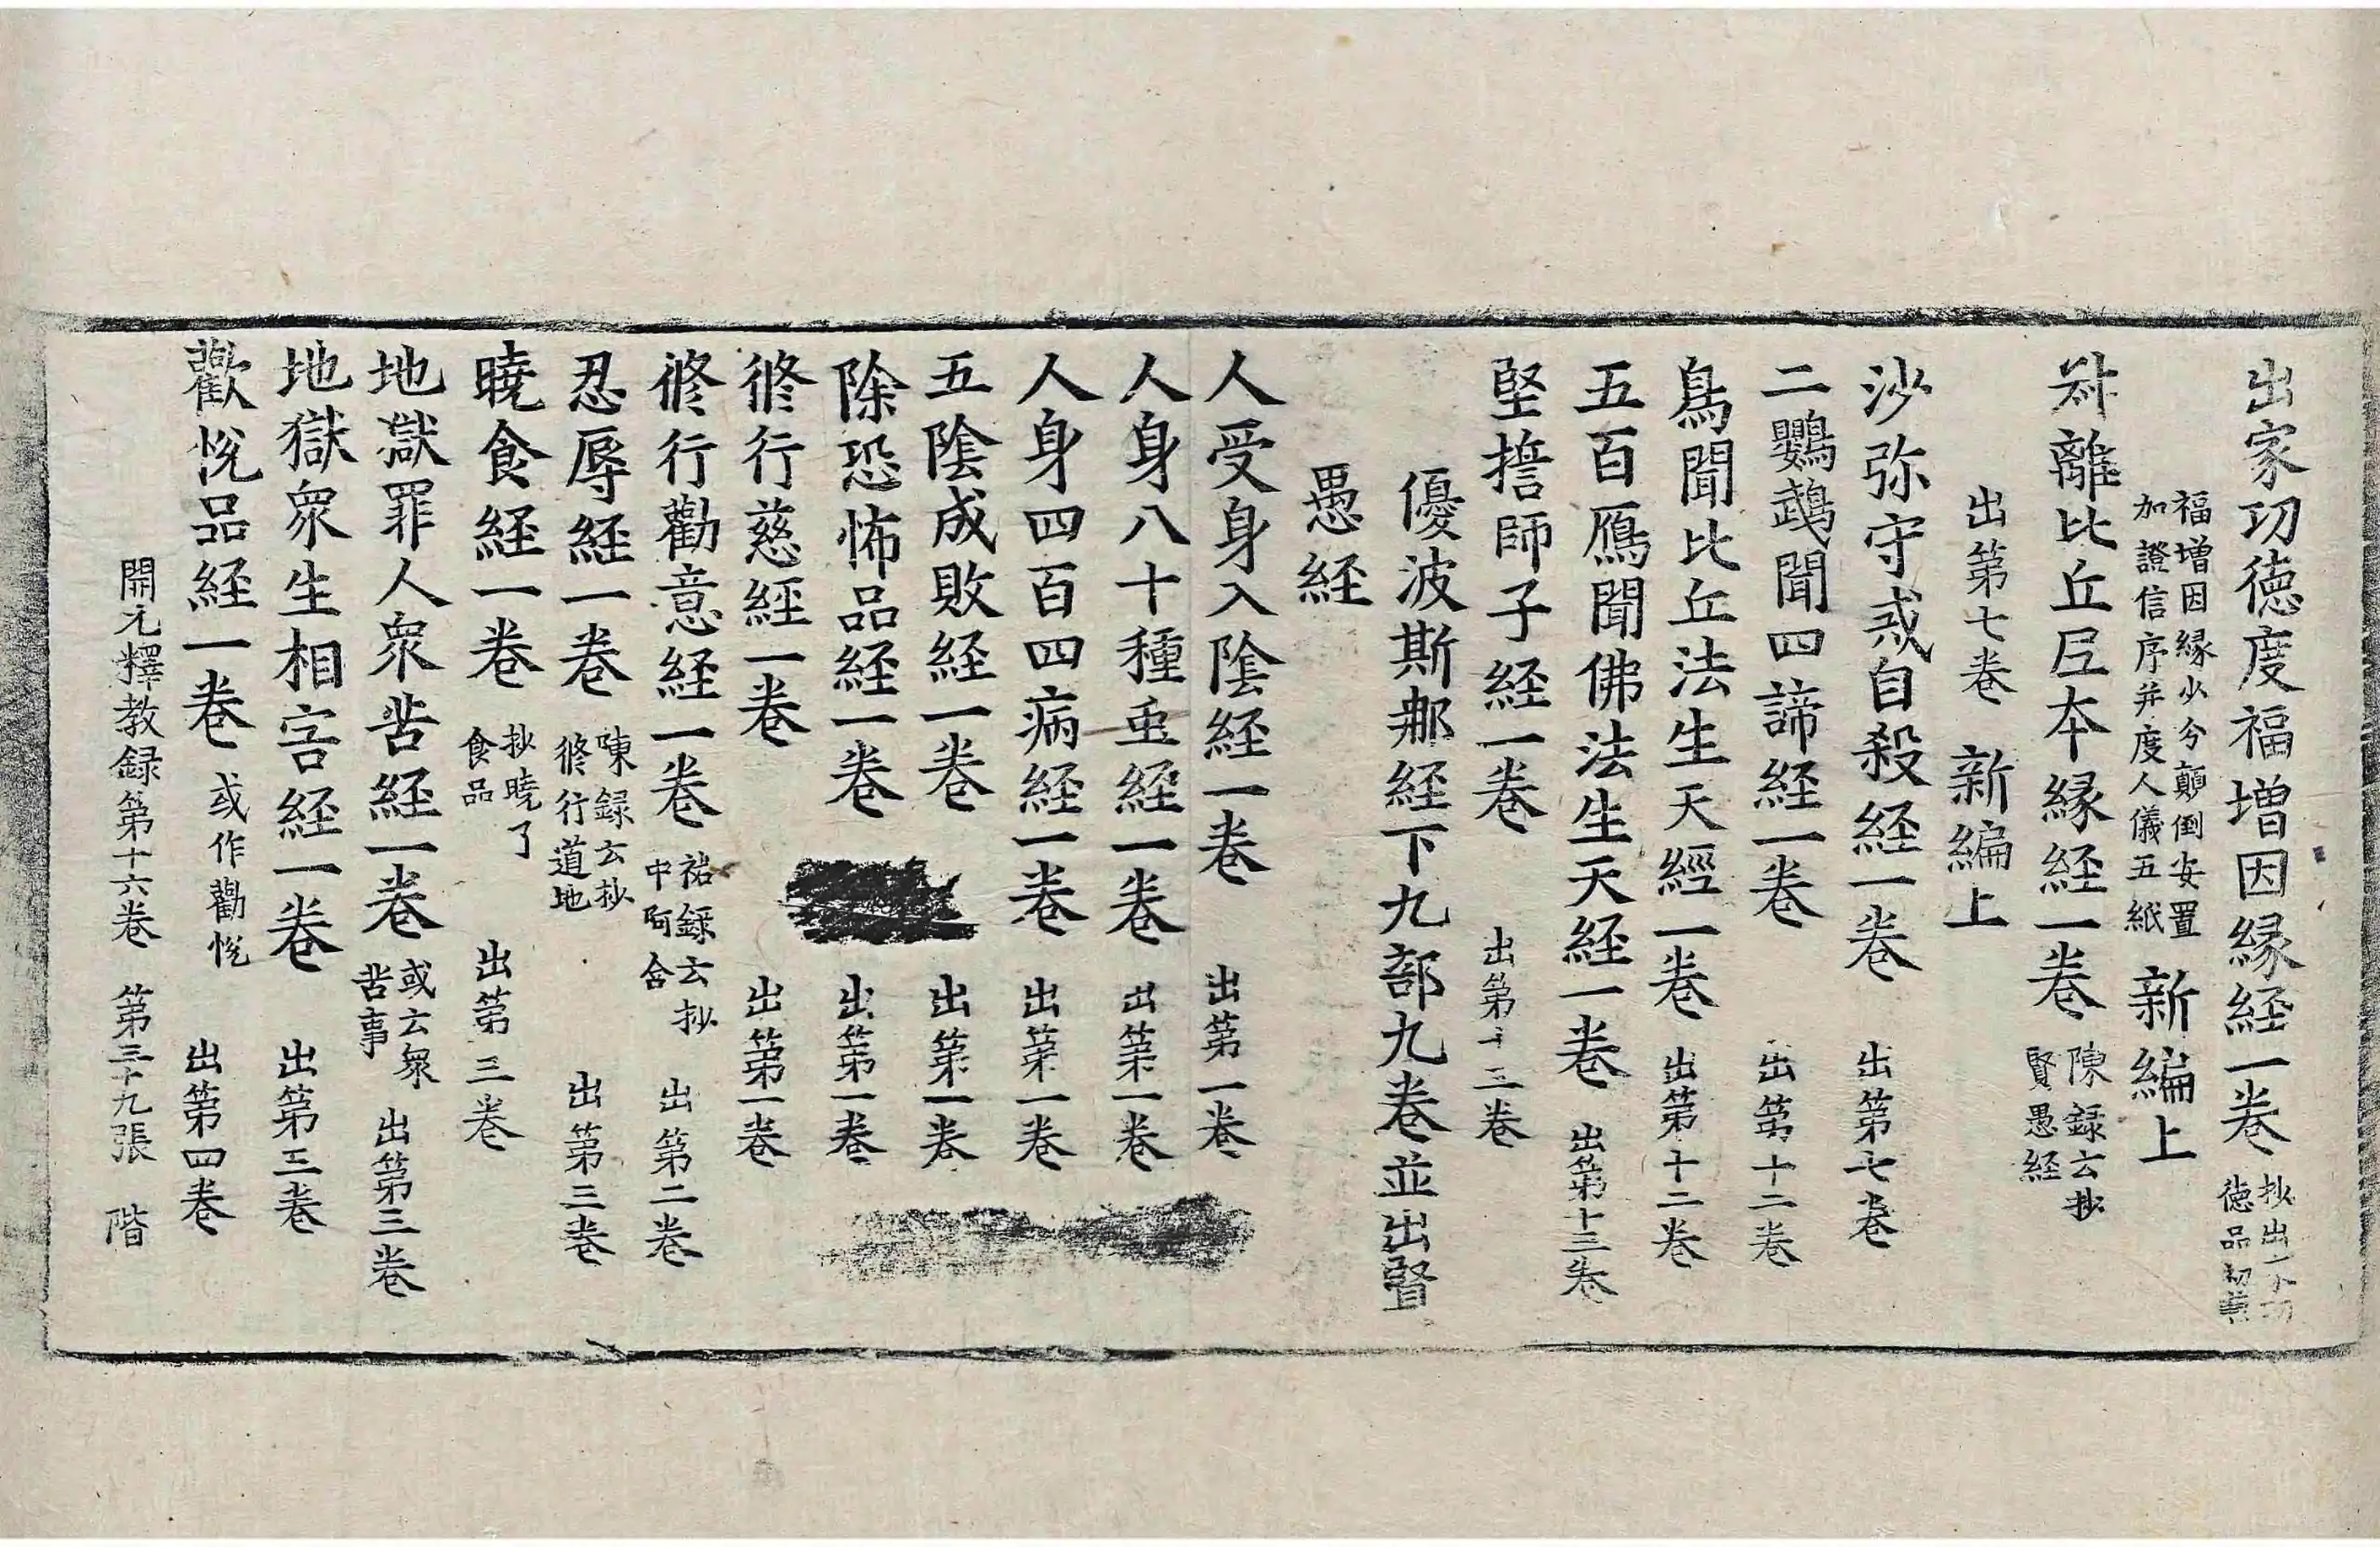 出家功徳度福増因緣経一卷 抄出一 徳品初
福增因緣少分顛倒安置 加證信序并度人儀五紙 新編上
離比丘尼本緣経一卷 陳録云抄 賢愚経
出第七卷 新編上
沙弥守戒自殺経一卷 出第七卷
二鸚鵡聞四諦経一卷 出第十二卷
鳥聞比丘法生天經一卷 出第十二卷
五百鴈聞佛法生天経一卷 出第十三卷
堅誓師子経一卷 出第十三卷
優波斯那経下九部九卷並出賢
愚経
人受身入陰経一卷 出第一卷
人身八十種虫経一卷 出第一卷
人身四百四病経一卷 出第一卷
五陰成敗経一卷 出第一卷
除恐怖品経一卷 出第一卷
修行慈經一卷 出第一卷
修行勸意経一卷 祐録云抄 中阿含 出第二卷
忍辱経一卷 陳録云抄 修行道地 出第三卷
曉食経一卷 抄曉了 食品 出第三卷
地獄罪人衆苦経一卷 或云衆 苦事 出第三卷
地獄衆生相害経一卷 出第三卷
歡悅品経一卷 或作勸悅 出第四卷
開元釋教録第十六卷 第三十九張 階